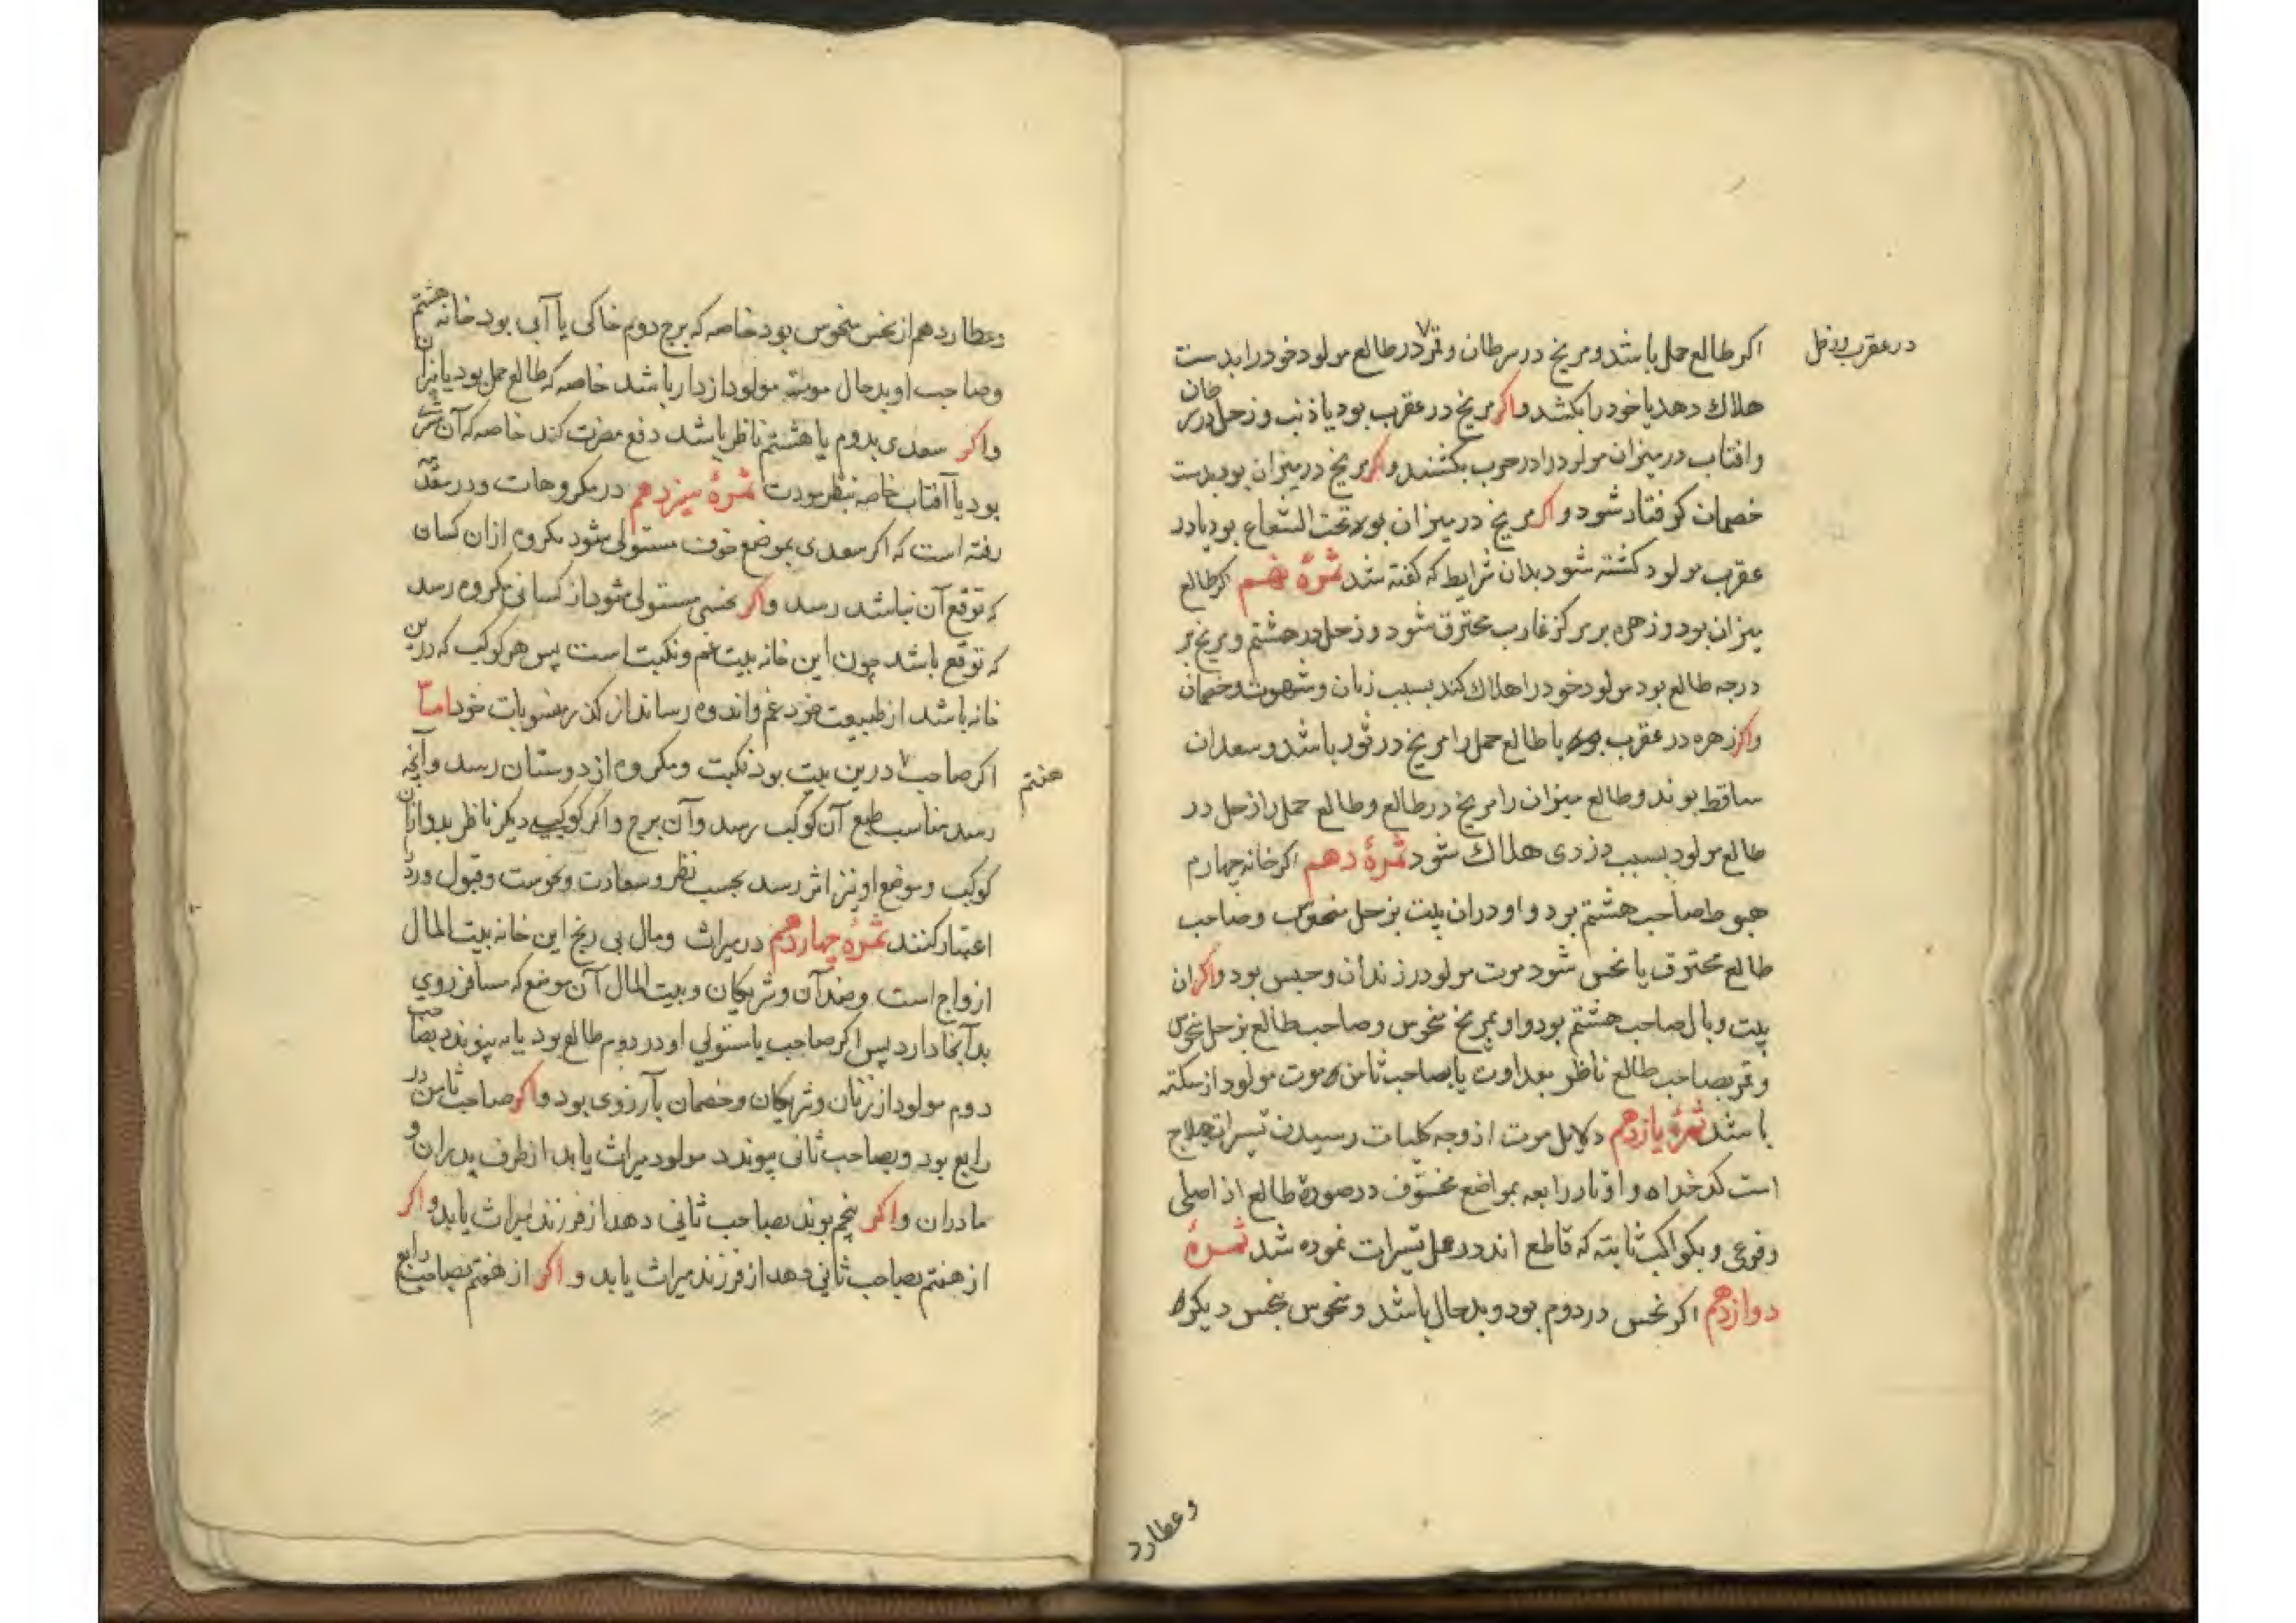 در عقرب و زحل
اکر طالع حمل باشد و مریخ در سرطان و قمر در طالع مولود خود را بدست
هلاک دهد یا خود را بکشد واکر مریخ در عقرب بود یا ذنب و زحل در سرطان
وافتاب در میزان مولود را در حرب بکشند واکر مریخ در میزان بود بدست
خصمان کرفتار شود واکر مریخ در میزان بود تحت الشعاع بود یا در
عقرب مولود کشته شود بدان شرایط که کفته شد ثمرهٔ نهم اکر طالع
میزان بود و زهره بر مرکز غارب محترق شود و زحل در هشتم و مریخ بر
درجه طالع بود مولود خود را هلاک کند بسبب زنان و شهوت و خصمان
واکر زهره در عقرب بود یا طالع حمل را مریخ در ثور باشد و سعدان
ساقط بوند و طالع میزان را مریخ در طالع و طالع حمل را زحل در
طالع مولود بسبب دزدی هلاک شود ثمرهٔ دهم اکر خانه چهارم
هبوط صاحب هشتم بود و او دران بیت بزحل منحوس و صاحب
طالع محترق یا نحس شود موت مولود در زندان و حبس بود واکر ان
بیت وبال صاحب هشتم بود و او بمریخ منحوس و صاحب طالع بزحل منحوس
و قمر بصاحب طالع ناظر بعداوت یا بصاحب ثامن موت مولود از سکته
باشد ثمرهٔ یازدهم دلایل موت از وجه کلیات رسیدن تسیرات هیلاج
است کدخداه و اوتاد رابعه بمواضع مخوف در صورة طالع از اصلی
و فرعی و بکواکب ثابته که قاطع اند در عمل تسیرات نموده شد ثمرهٔ
دوازدهم اکر نحس در دوم بود و بدحال باشد و منحوس بنحس دیکر
وعطارد
وعطارد هم از نحس منحوس بود خاصه که برج دوم خاکی یا آبی بود خانه هشتم
وصاحب او بدحال موت مولود از دار باشد خاصه که طالع حمل بود یا میزان
واکر سعدی بدوم یا هشتم ناظر باشد دفع مضرت کند خاصه که آن مشتری
بود یا آفتاب خاصه بنظر مودت ثمرهٔ سیزدهم در مکروهات و در مقدمه
رفته است که اکر سعدی بموضع خوف مستولی شود مکروه ازان کسان
که توقع آن نباشد رسد واکر نحسی مستولی شود از کسانی مکروه رسد
که توقع باشد چون این خانه بیت غم و نکبت است پس هر کوکب که درین
خانه باشد از طبیعت خود غم و اندوه رساند از منسوبات خود اما
اکر صاحب ۷ درین بیت بود نکبت و مکروه از دوستان رسد و آنچه
هفتم
رسد مناسب طبع آن کوکب رسد و آن برج واکر کوکبی دیکر ناظر بدو ازان
کوکب و موضع او نیز اثر رسد بحسب نظر و سعادت و نحوست و قبول و رد
اعتبار کنند ثمرهٔ چهاردهم در میراث و مال بی رنج این خانه بیت المال
ازواج است و ضدان و شریکان و بیت المال آن موضع که مسافر روی
بدآنجا دارد پس اکر صاحب یا مستولی او در دوم طالع بود یا به پیوندد بصاحب
دوم مولود از زنان و شریکان و خصمان بآرزوی بود واکر صاحب ثامن در
رابع بود و بصاحب ثانی پیوندد مولود میراث یابد از طرف پدران و
مادران واکر پنجم بوند بصاحب ثانی دهد از فرزند میراث یابد واکر
از هفتم بصاحب ثانی دهد از فرزند میراث یابد واکر از هفتم بصاحب رابع